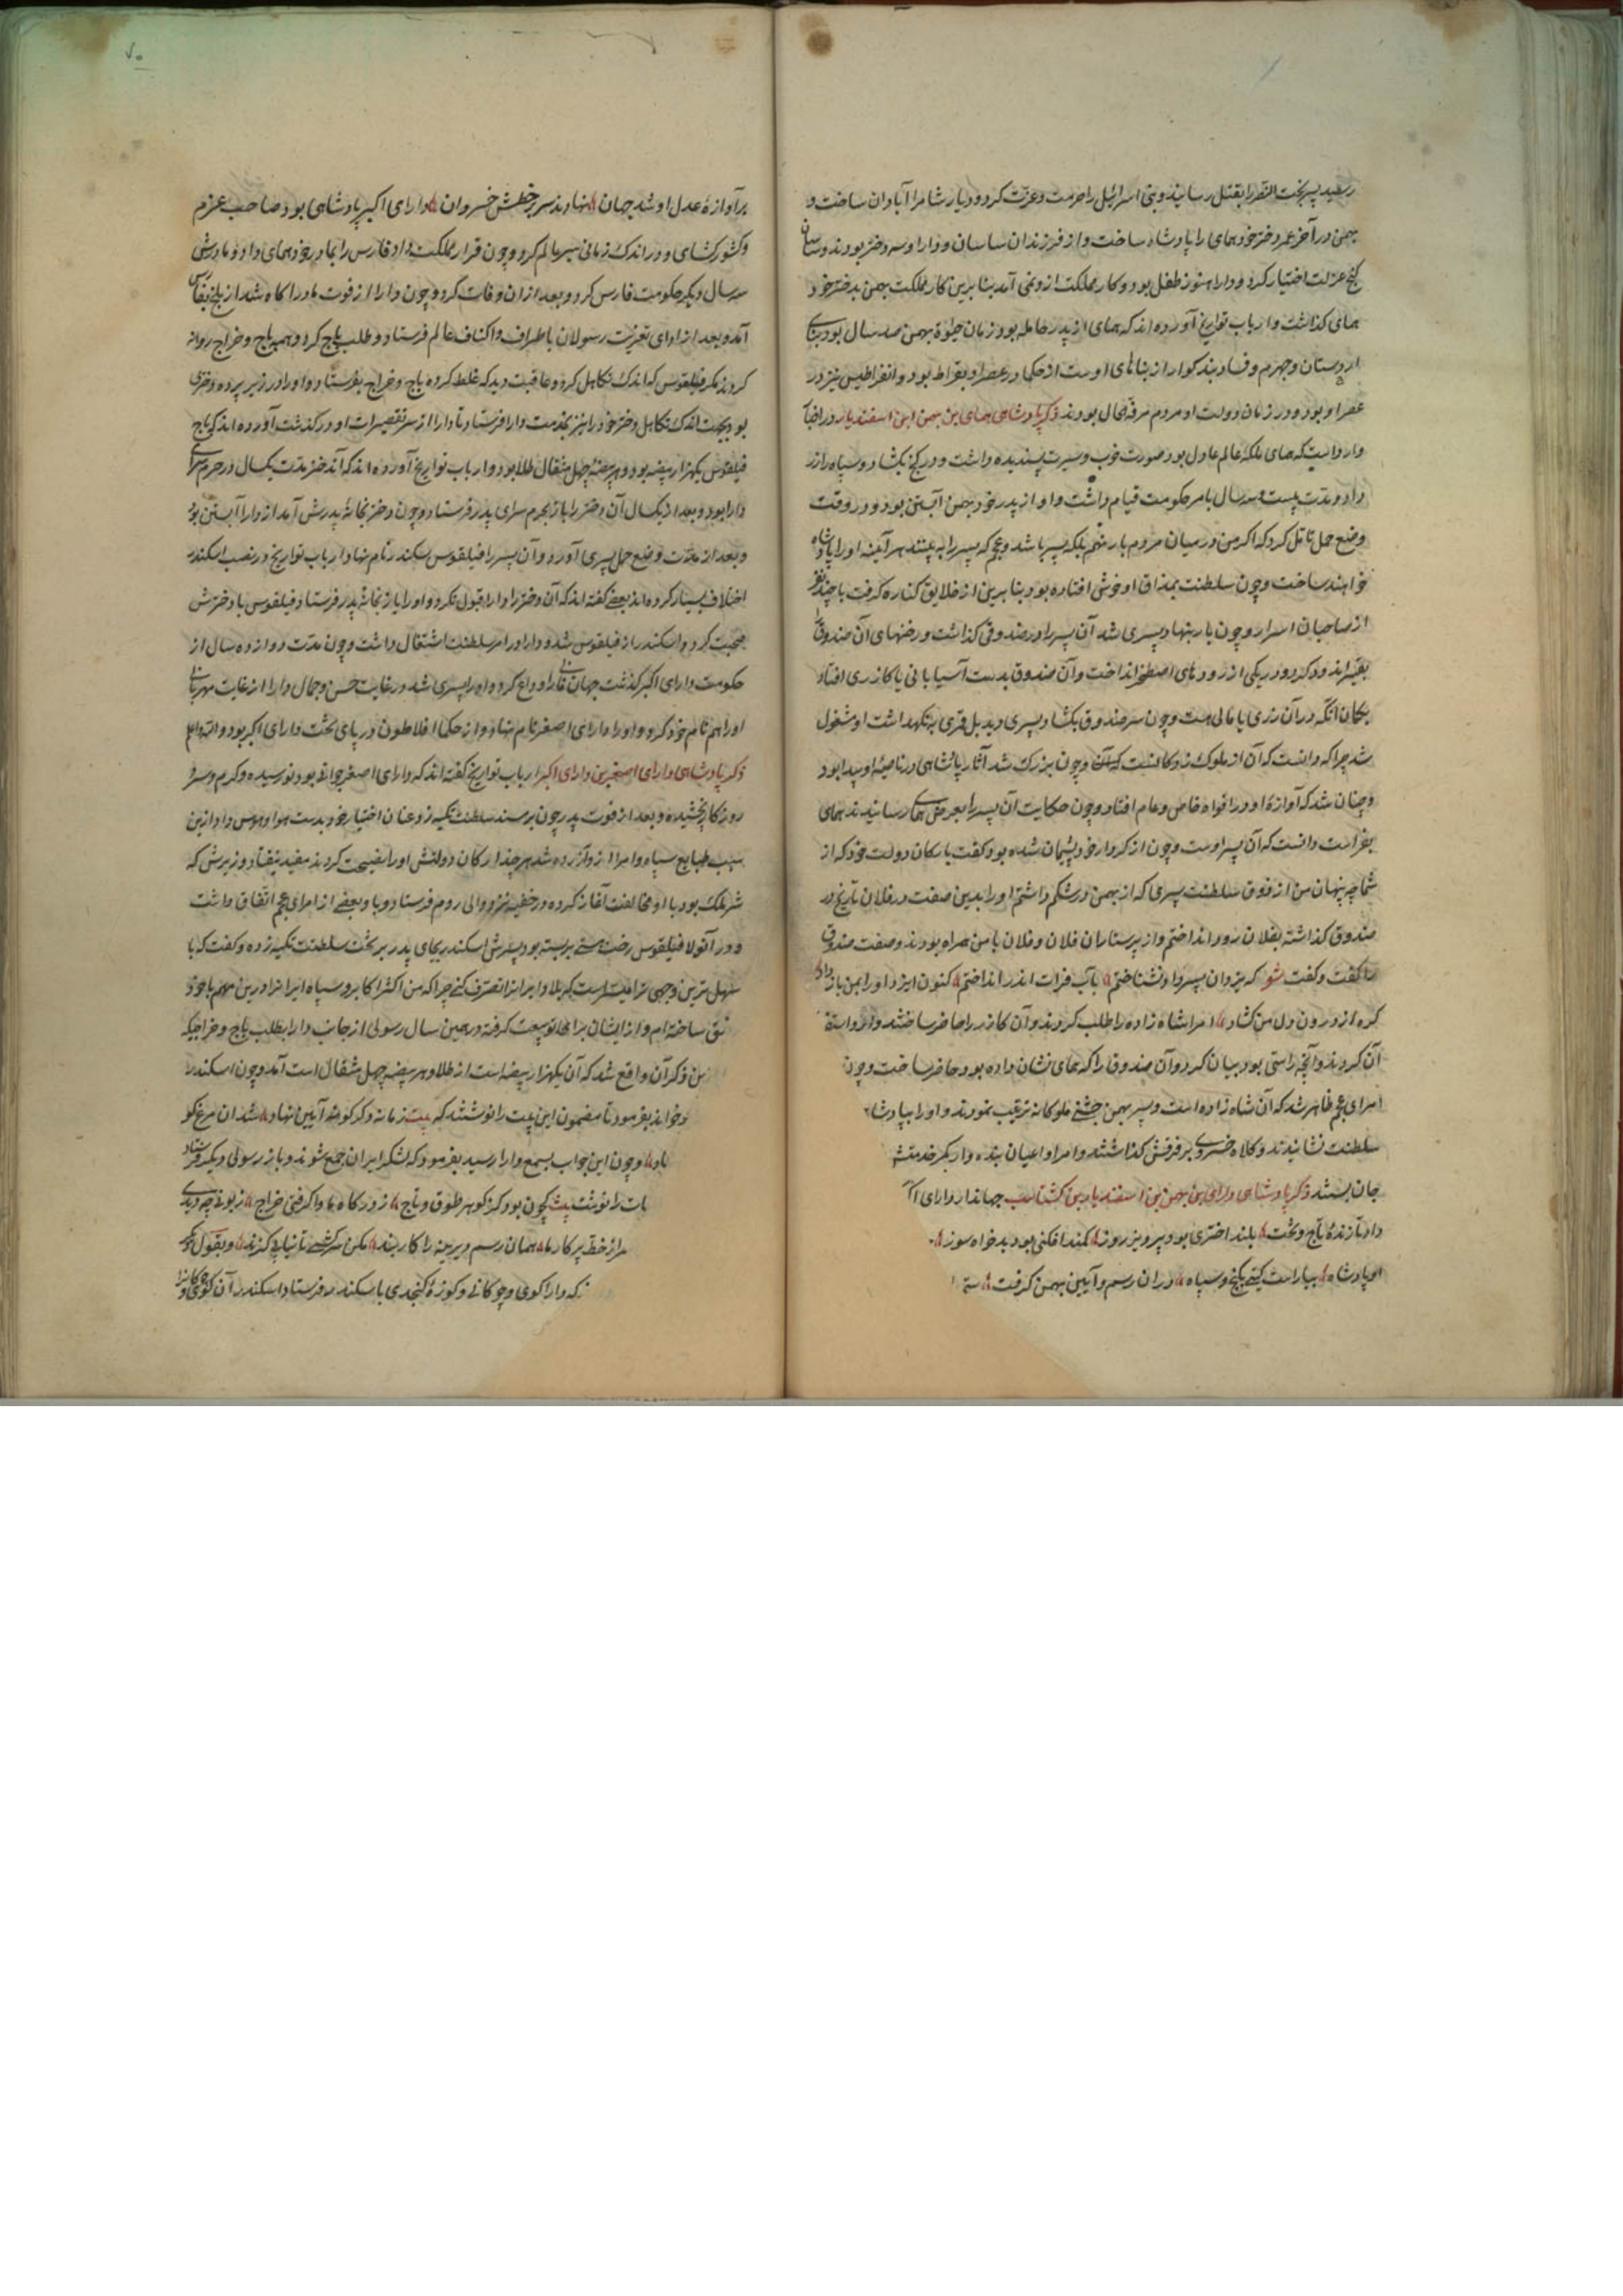 رسید پسر بخت النصر را بقتل رسانید و بنی اسرائیل را حرمت و عزت کرد و دیار شام را آبادان ساخت و
بهمن در آخر عمر دختر خود همای را پادشاه ساخت و از فرزندان ساسان و دارا و سه دختر بودند و ساسان
کنج عزلت اختیار کرد و دارا هنوز طفل بود و کار مملکت ازو نمی آمد بنا برین کار مملکت بهمن بدختر خود
همای گذاشت و ارباب تواریخ آورده اند که همای از پدر حامله بود زمان حیوة بهمن صد سال بود بنای
اردستان و جهرم و فسا و بندکوار از بناهای اوست از حکما در عصر او بقراط بود و انقراطیس نیز در
عصر او بود و در زمان دولت او مردم مرفه الحال بودند ذکر پادشاهی همای بن بهمن ابن اسفندیار در اخبار
وارد است که همای ملکهٔ عالم عادل بود صورت خوب و سیرت پسندیده داشت و در گنج بگشاد و سپاه را زر
داد و مدت بیست و سه سال بامر حکومت قیام داشت و او از پدر خود بهمن آبستن بود و در وقت
وضع حمل تامل کرد که اگر من در میان مردم بار بنهم بلکه پسر باشد و عجم که پسر را ببینند هر آینه او را پادشاه
خواهند ساخت و چون سلطنت بمذاق او خوش افتاده بود بنا برین از خلایق کناره گرفت با چند نفر
از صاحبان اسرار و چون بار بنهاد پسری شد آن پسر را در صندوقی گذاشت و رخنهای آن صندوق را
بقیر اندود کرد و در یکی از رودهای اصطخر انداخت و آن صندوق بدست آسیابانی یا گازری افتاد
بگمان آنکه در آن زری یا مالی هست و چون سر صندوق بگشاد پسری دید بل قمری به نگهداشت او مشغول
شد چرا که دانست که آن از ملوک زادگانست که و چون بزرگ شد آثار پادشاهی در ناصیهٔ او پیدا بود
و چنان شد که آوازهٔ او در افواه خاص و عام افتاد و چون حکایت آن پسر را بعرض همای رسانیدند همای
بفراست دانست که آن پسر اوست و چون از کردار خود پشیمان شده بود گفت با ارکان دولت خود که از
شما چه پنهان من از فوق سلطنت پسری که از بهمن در شکم داشتم او را بدین صفت در فلان تاریخ در
صندوق گذاشته بفلان رود انداختم و از پرستاران فلان و فلان با من همراه بودند و صفت صندوق
را گفت و گفت که یزدان پسر داد نشناختم بآب فرات اندر انداختم کنون ایزد او را بمن باز داد
گره از درون دل من گشاد امرا شاه زاده را طلب کردند و آن گازر را حاضر ساختند و ازو استفسار
آن کردند و آنچه راستی بود بیان کرد و آن صندوق را که همای نشان داده بود حاضر ساخت و چون
امرای عجم ظاهر شد که آن شاه زاده است و پسر بهمن جشنی ملوکانه ترتیب نمودند و او را بپادشا
سلطنت نشانیدند و کلاه خسروی بر فرقش گذاشتند و امرا و اعیان بنده وار کمر خدمتش
جان بستند ذکر پادشاهی دارای بن بهمن بن اسفندیار بن گشتاسب جهاندار دارای
دادنازندهٔ تاج و تخت بلند اختری بود پیروز روز کمند افکنی بود بدخواه سوز
او پادشاه بیاراست گیتی بگنج و سپاه در آن رسم و آیین بهمن گرفت
بر آوازهٔ عدل او شد جهان نهادند سر بر خطش خسروان دارای اکبر پادشاهی بود صاحب عزم
و کشورگشای و در اندک زمانی سیر عالم کرد و چون قرار مملکت داد فارس را بمادر خود همای داد و مادرش
سه سال دیگر حکومت فارس کرد و بعد از آن وفات کرد و چون دارا از فوت مادر آگاه شد از بلخ بفارس
آمد و بعد از ادای تعزیت رسولان باطراف و اکناف عالم فرستاد و طلب باج کرد و همه باج و خراج روانه
کردند مگر فیلقوس که اندک تکاهل کرد و عاقبت دید که غلط کرده باج و خراج بفرستاد و او را در زیر پرده دختری
بود بجهت اندک تکاهل دختر خود را نیز بخدمت دارا فرستاد تا دارا از سر تقصیرات او در گذشت آورده اند که باج
فیلقوس یکهزار بیضه بود و هر بیضهٔ چهل مثقال طلا بود و ارباب تواریخ آورده اند که آن دختر مدت یکسال در حرم سرای
دارا بود و بعد از یکسال آن دختر را باز بحرم سرای پدر فرستاد و چون دختر بخانهٔ پدرش آمد از دارا آبستن بود
و بعد از مدت وضع حمل پسری آورد و آن پسر را فیلقوس سکندر نام نهاد و ارباب تواریخ در نصب اسکندر
اختلاف بسیار کرده اند بعضی گفته اند که آن دختر را دارا قبول نکرد و او را باز بخانهٔ پدر فرستاد و فیلقوس با دخترش
صحبت کرد و اسکندر از فیلقوس شد و دارا در امر سلطنت اشتغال داشت و چون مدت دوازده سال از
حکومت دارای اکبر گذشت جهان فانی را وداع کرد و او را پسری شد در غایت حسن و جمال دارا از غایت مهربانی
او را هم نام خود کرد و او را دارای اصغر نام نهاد و از حکما افلاطون در پای تخت دارای اکبر بود و الله اعلم
ذکر پادشاهی دارای اصغر بن دارای اکبر ارباب تواریخ گفته اند که دارای اصغر جوانی بود نورسیده و گرم و سرد
روزگار نچشیده و بعد از فوت پدر چون بر مسند سلطنت تکیه زد عنان اختیار خود بدست هوا و هوس داد ازین
سبب طبایع سپاه و امرا ازو آزرده شد هر چند ارکان دولتش او را نصیحت کردند مفید نیفتاد وزیرش که
شریک ملک بود با او مخالفت آغاز کرده در خفیه نزد والی روم فرستاد و با و بعضی از امرای عجم اتفاق داشت
و در آنولا فیلقوس رخت هستی بر بسته بود پسرش اسکندر بجای پدر بر تخت سلطنت تکیه زده و گفت که با
سهل ترین وجهی ترا میسر است که بلاد ایران را تصرف کنی چرا که من اکثر اکابر و سپاه ایران را درین مهم با خود
متفق ساخته ام و از ایشان برای تو بیعت گرفته و همین سال رسولی از جانب دارا بطلب باج و خراجی که
ذکر آن واقع شد که آن یکهزار بیضه است از طلا و هر بیضه چهل مثقال است آمد و چون اسکندر
بخواند بفرمود تا مضمون این بیت را نوشتند که بیت زمانه دگر گونه آیین نهاد شد آن مرغ کو
نهاد و چون این جواب بسمع دارا رسید بفرمود که لشکر ایران جمع شوند و باز رسولی دیگر فرستاد
بات را نوشت بیت چون بود کز گوهر طوق و تاج ز درگاه ما وا گرفتی خراج زبونی چه دیدی
مرا ز خط پرگار ما همان رسم دیرینه را کار بند مکن سرکشی تا نیابی گزند و بقول دیگر
که دارا گوی و چوگانی و کوزهٔ کنجدی باسکندر فرستاد اسکندر آن گوی و چوگان را